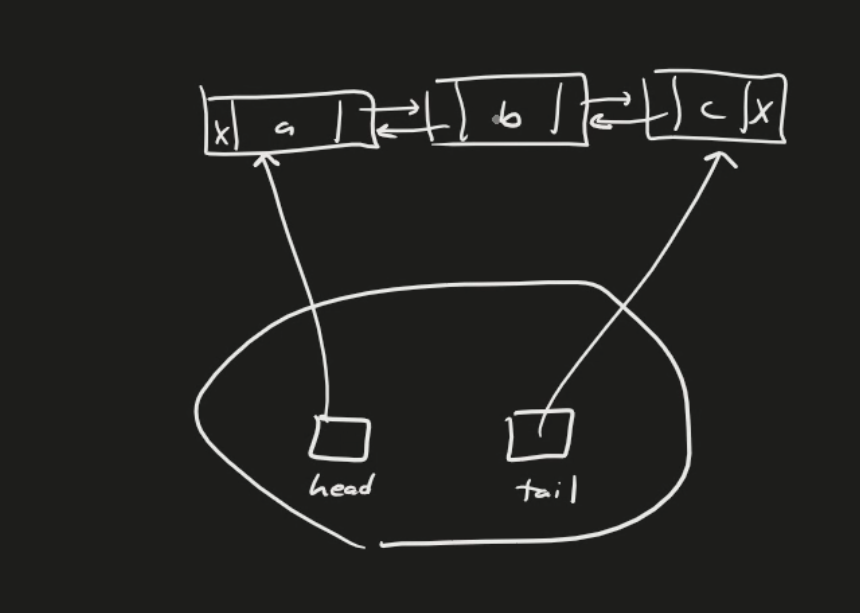 x a b c x
head tail